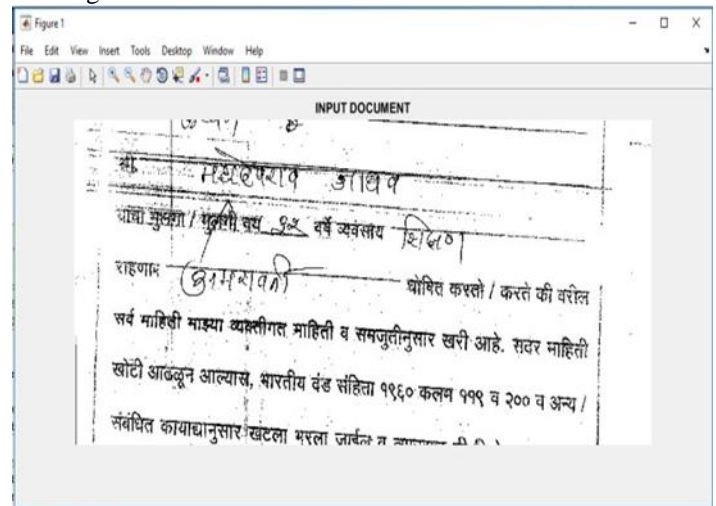 Figure 1
File Edit View Insert Tools Desktop Window Help
INPUT DOCUMENT
श्री. महादेवराव जाधव
यांचा मुलगा / मुलगी वय वर्षे व्यवसाय शिक्षण
राहणार अमरावती घोषित करतो / करते की वरील
सर्व माहिती माझ्या व्यक्तीगत माहिती व समजुतीनुसार खरी आहे. सदर माहिती
खोटी आढळून आल्यास, भारतीय दंड संहिता १९६० कलम १९९ व २०० व अन्य /
संबंधित कायाद्यानुसार खटला भरला जाईल व